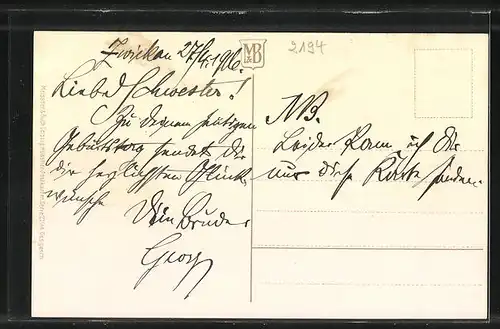 Zwickau 27/4. 1906.
Liebe Schwester!
Zu deinem heutigen
Geburtstag sendet Dir
die herzlichsten Glück-
wünsche
Dein Bruder
Georg
NB.
Leider kann ich Dir
nur diese Karte senden.
M B
&
2194